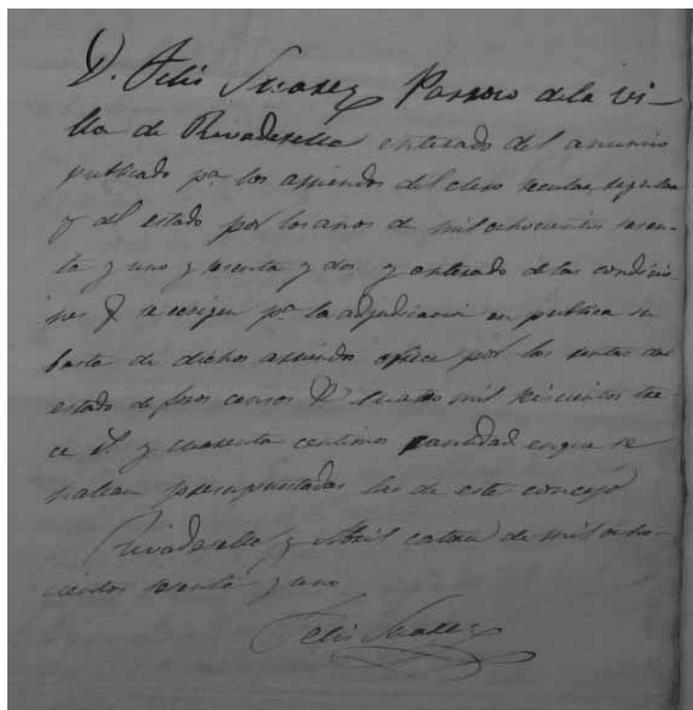 D. Felis Suarez Parroco dela vi-
lla de Rivadesella enterado del anuncio
publicado pa. los arriendos del clero secular, regular
y del estado por los anos de mil ochocientos sesen-
ta y uno y sesenta y dos y enterado de las condicio-
nes q se ecsigen pa la adjudicacion en publica su
basta de dichos arriendos ofrece por las rentas del
estado de foros censos &a cuatro mil seiscientos tre-
ce rs. y cuarenta centimos cantidad enque se
hallan presupuestadas las de este concejo
Rivadesella y Abril catorce de mil ocho-
cientos sesenta y uno
Felis Suarez